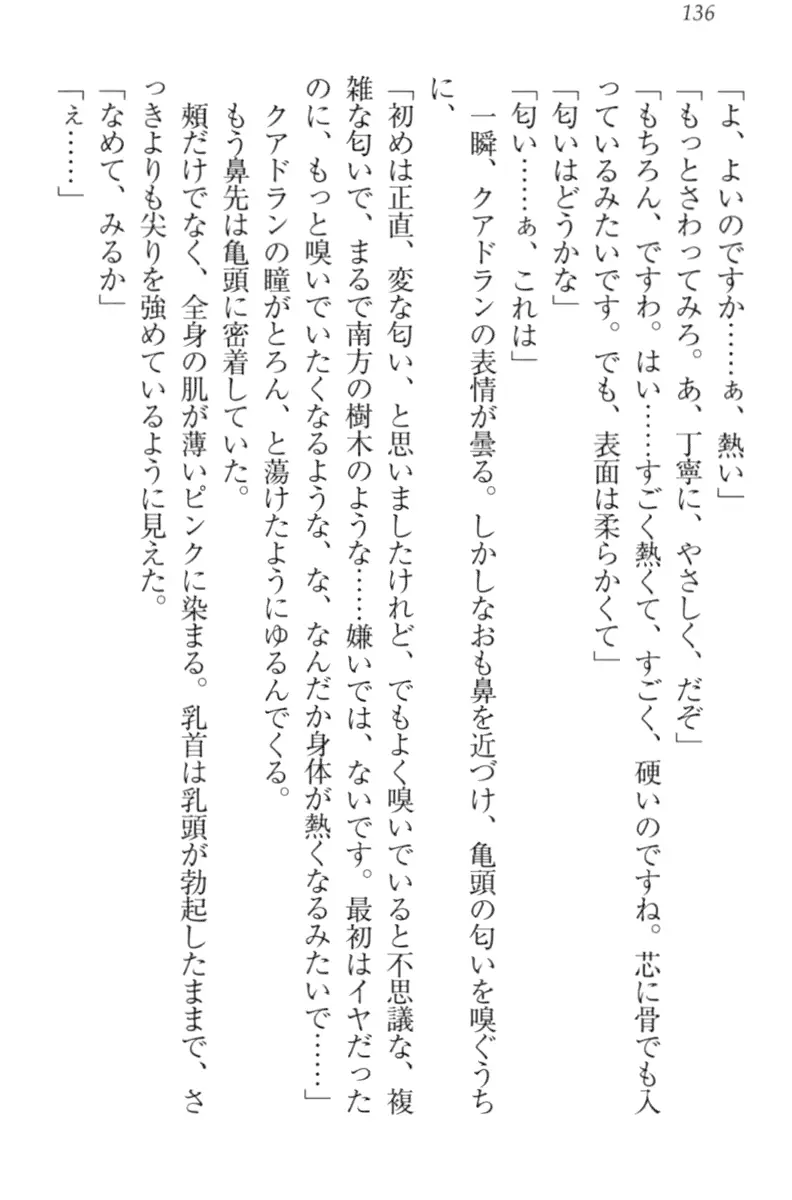 136
「よ、よいのですか……ぁ、熱い」
「もっとさわってみろ。あ、丁寧に、やさしく、だぞ」
「もちろん、ですわ。はい……すごく熱くて、すごく、硬いのですね。芯に骨でも入
っているみたいです。でも、表面は柔らかくて」
「匂いはどうかな」
「匂い……ぁ、これは」
　一瞬、クアドランの表情が曇る。しかしなおも鼻を近づけ、亀頭の匂いを嗅ぐうち
に、
「初めは正直、変な匂い、と思いましたけれど、でもよく嗅いでいると不思議な、複
雑な匂いで、まるで南方の樹木のような……嫌いでは、ないです。最初はイヤだった
のに、もっと嗅いでいたくなるような、な、なんだか身体が熱くなるみたいで……」
　クアドランの瞳がとろん、と蕩けたようにゆるんでくる。
　もう鼻先は亀頭に密着していた。
　頰だけでなく、全身の肌が薄いピンクに染まる。乳首は乳頭が勃起したままで、さ
っきよりも尖りを強めているように見えた。
「なめて、みるか」
「ぇ……」